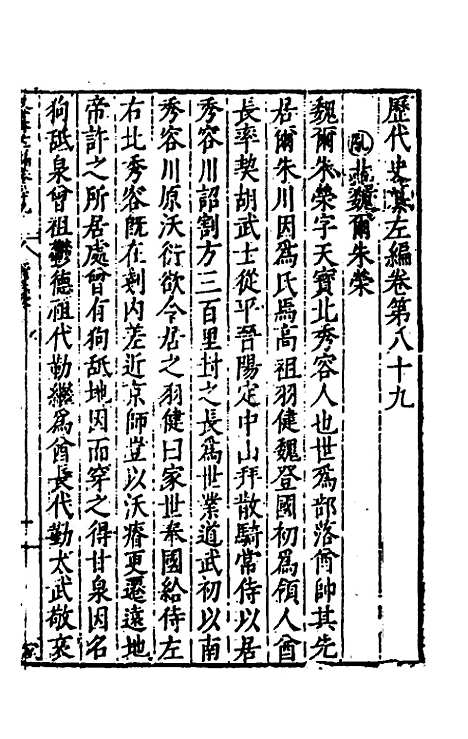 歷代史纂左編卷第八十九
亂 北魏 爾朱榮
魏爾朱榮字天寶北秀容人也世爲部落酋帥其先
居爾朱川因爲氏焉高祖羽健魏登國初爲領人酋
長率契胡武士從平晉陽定中山拜散騎常侍以居
秀容川詔割方三百里封之長爲世業道武初以南
秀容川原沃衍欲令居之羽健曰家世奉國給侍左
右北秀容既在剗內差近京師豈以沃瘠更遷遠地
帝許之所居處曾有狗舐地因而穿之得甘泉因名
狗舐泉曾祖鬱德祖代勤繼爲酋長代勤太武敬哀